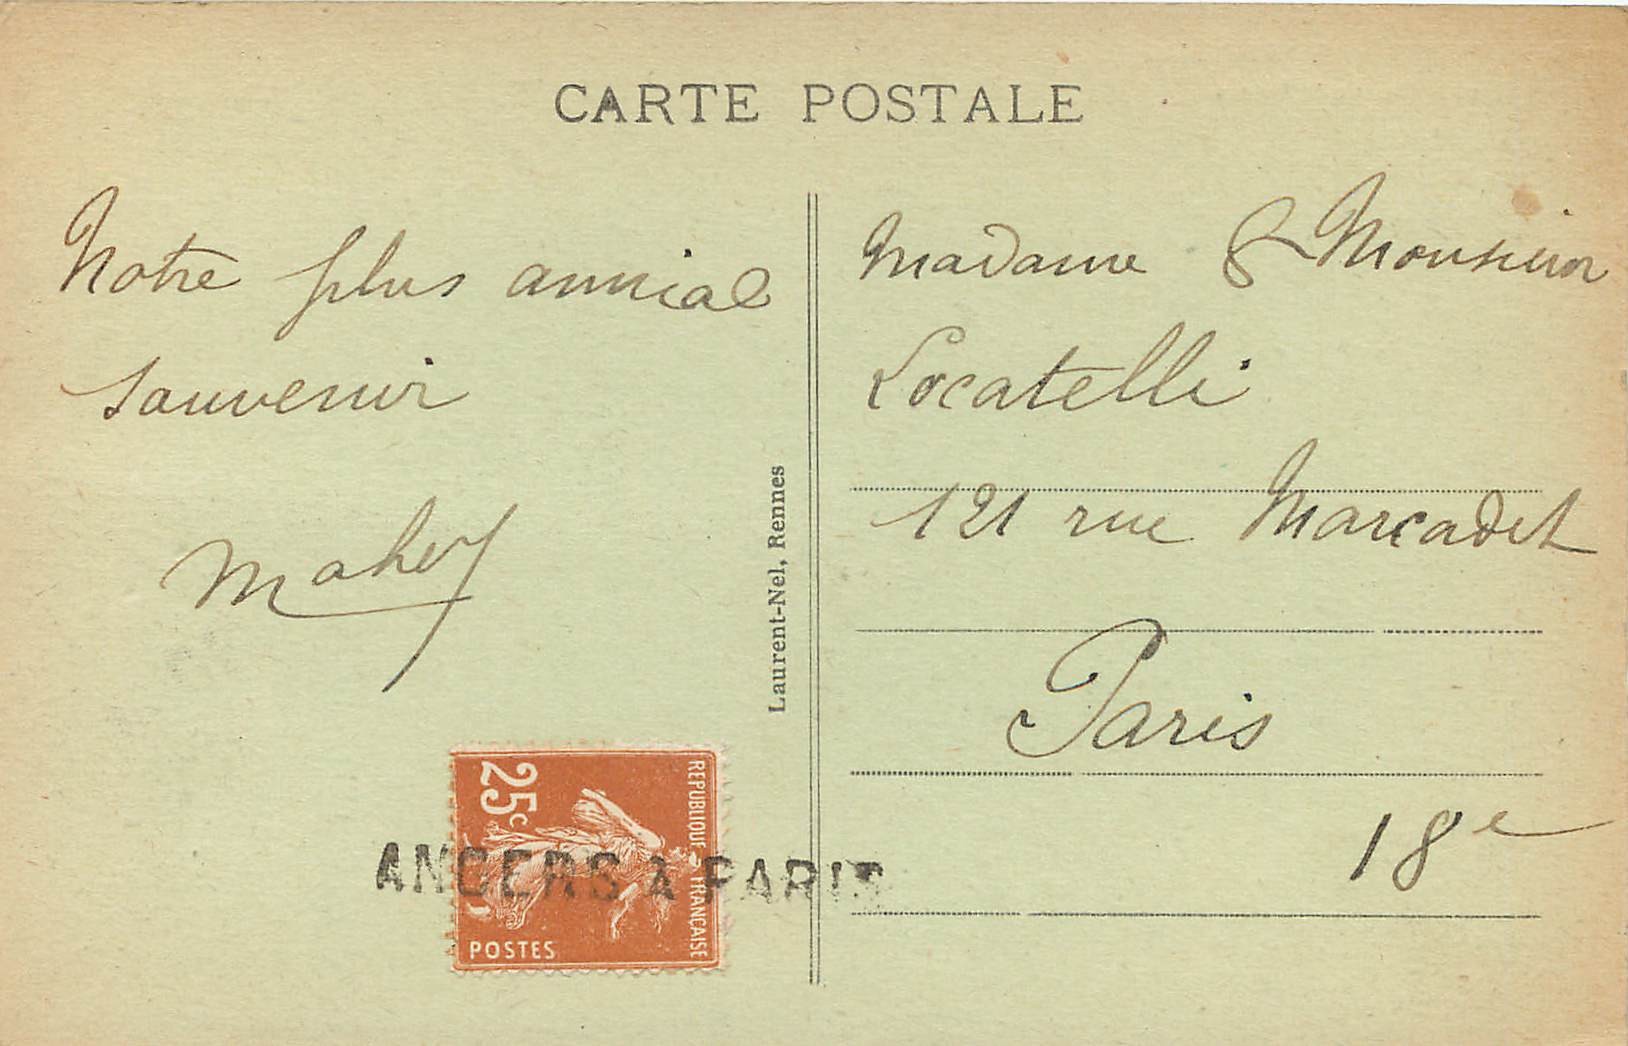 CARTE POSTALE
Notre plus amical
souvenir
Mahey
Laurent-Nel, Rennes
Madame & Monsieur
Locatelli
121 rue Marcadet
Paris
18e
25c
REPUBLIQUE FRANÇAISE
POSTES
ANGERS A PARIS